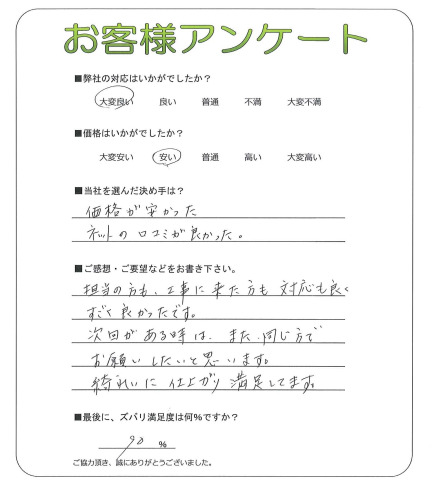 お客様アンケート
■弊社の対応はいかがでしたか？
大変良い 良い 普通 不満 大変不満
■価格はいかがでしたか？
大変安い 安い 普通 高い 大変高い
■当社を選んだ決め手は？
価格が安かった
ネットの口コミが良かった。
■ご感想・ご要望などをお書き下さい。
担当の方も、工事に来た方も 対応も良く
すごく良かったです。
次回がある時は、また、同じ方で
お願いしたいと思います。
綺れいに 仕上がり 満足してます。
■最後に、ズバリ満足度は何%ですか？
90 %
ご協力頂き、誠にありがとうございました。